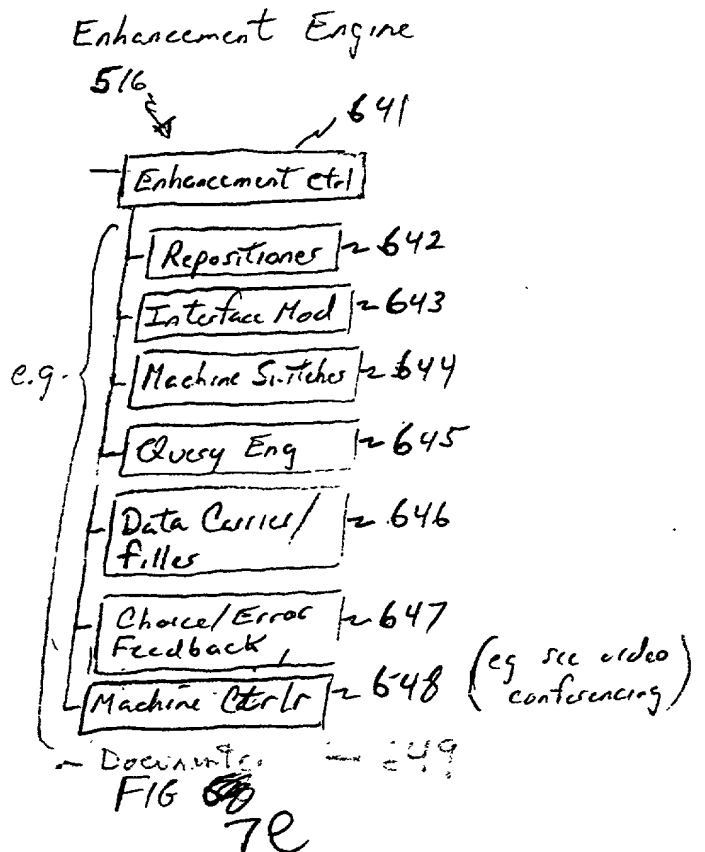 Enhancement Engine
516
641
Enhancement Ctrl
Repositioner 642
Interface Mod 643
e.g.
Machine Switcher 644
Query Eng 645
Data Carrier/
filler 646
Choice/Error
Feedback 647
Machine Ctrlr 648 (eg see video
conferencing)
649
FIG
7e